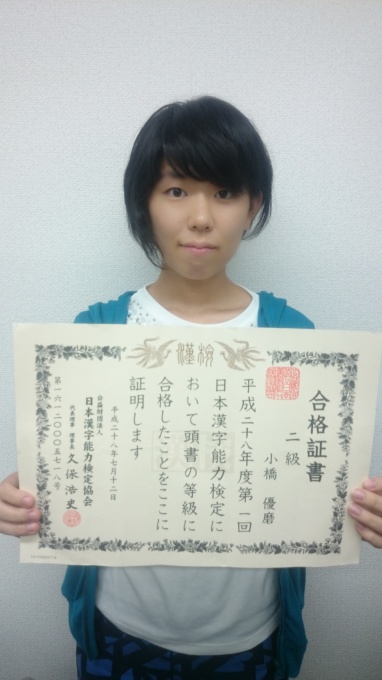 漢検
合格証書
二級
小橋 優磨
平成二十八年度第一回
日本漢字能力検定に
おいて頭書の等級に
合格したことをここに
証明します
平成二十八年七月十二日
公益財団法人
日本漢字能力検定協会
代表理事 理事長 久保浩史
第一六一二〇〇〇五七一八号